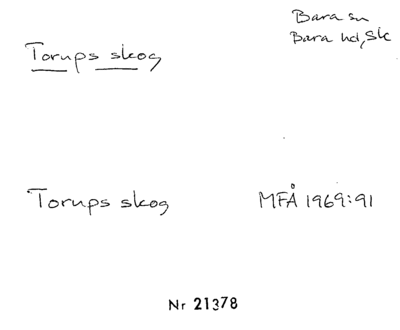 Bara sn
Torups skog
Bara hd, Sk
Torups skog
MFÅ 1969:91
Nr 21378